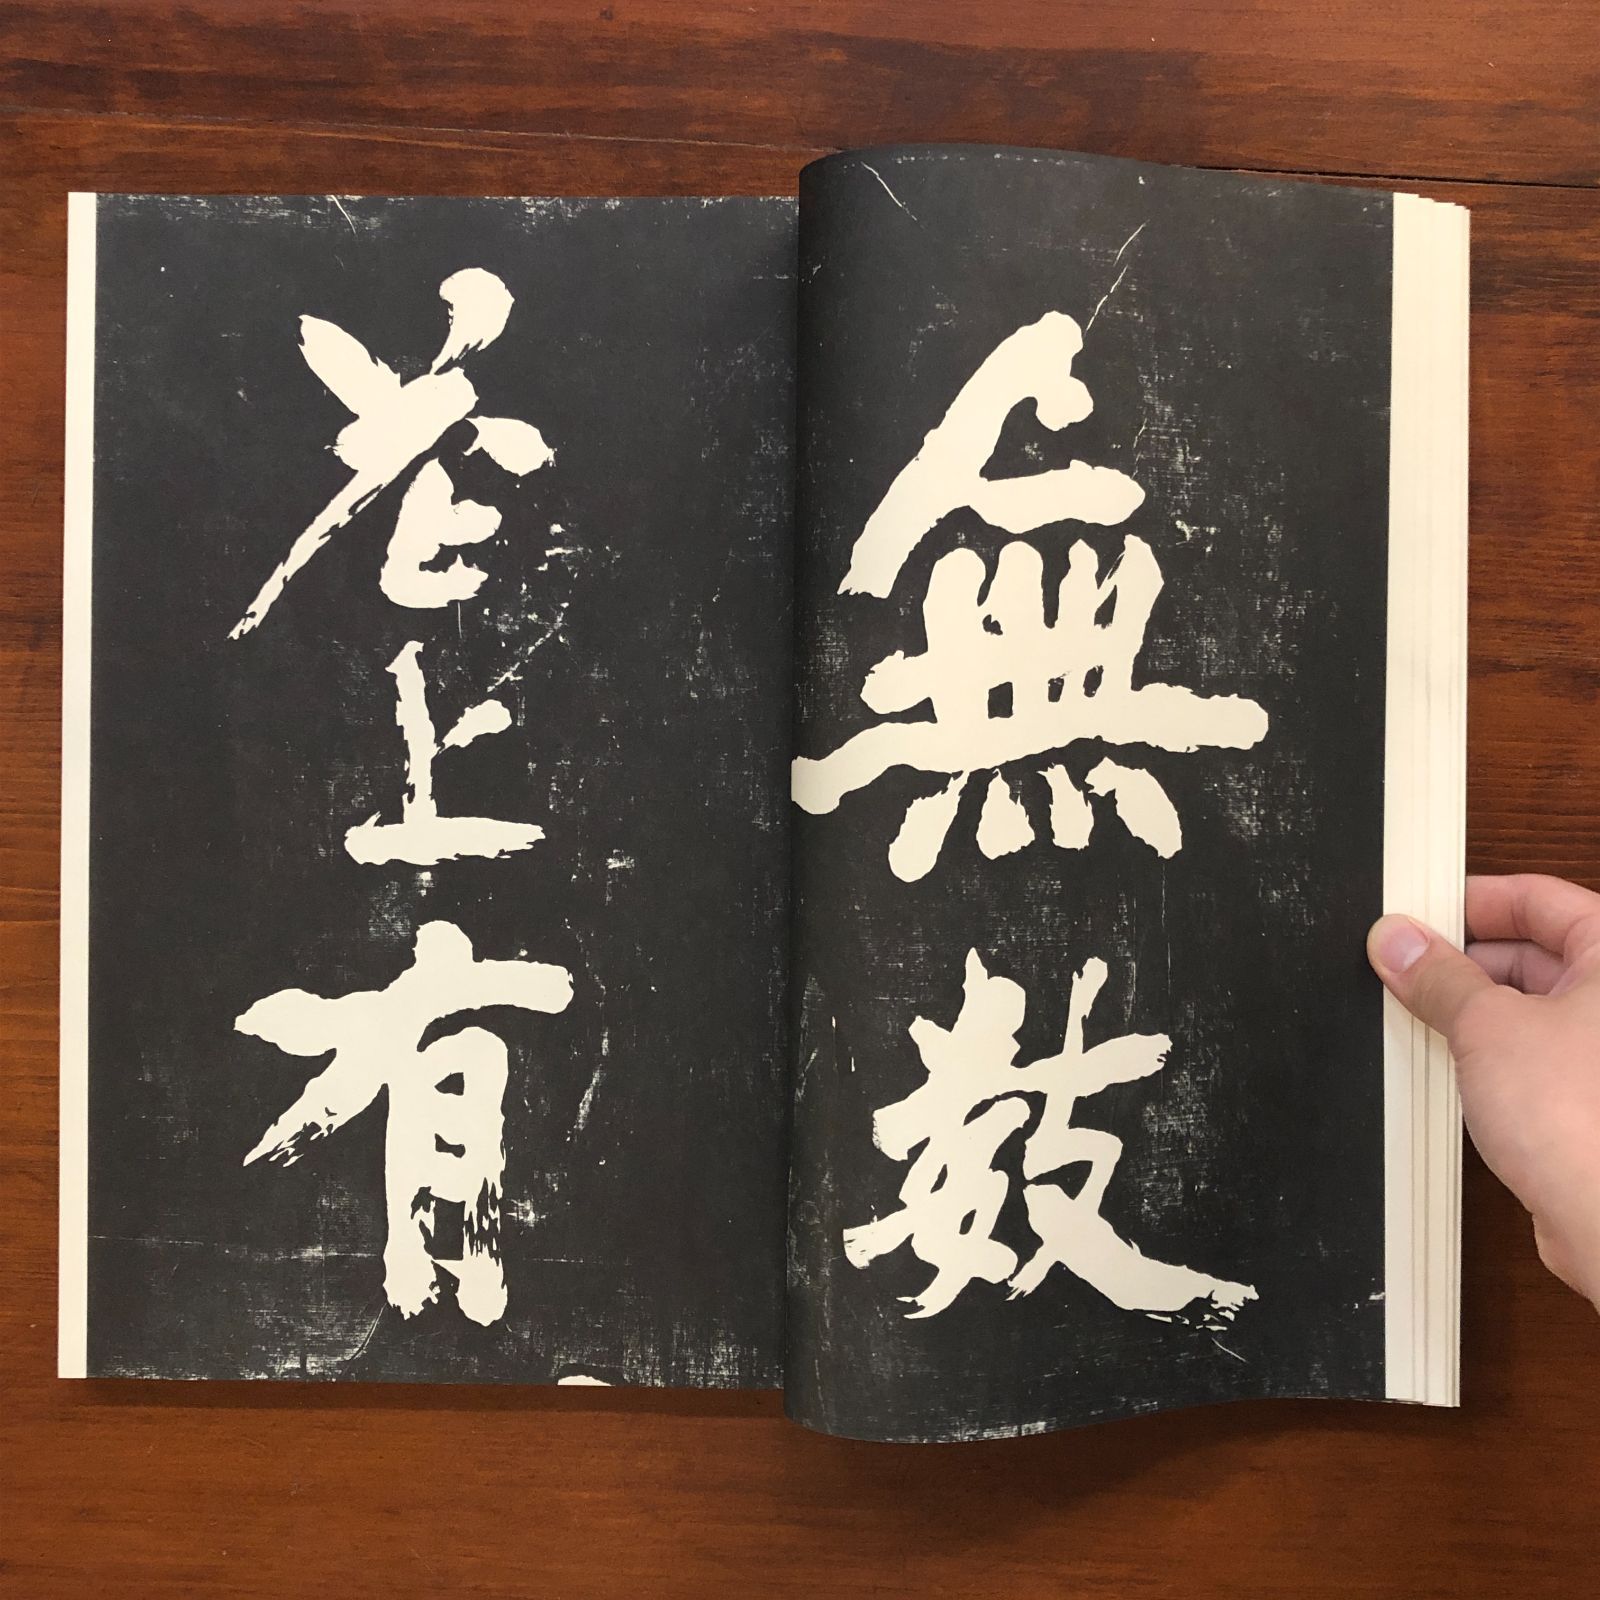 無數
花上有